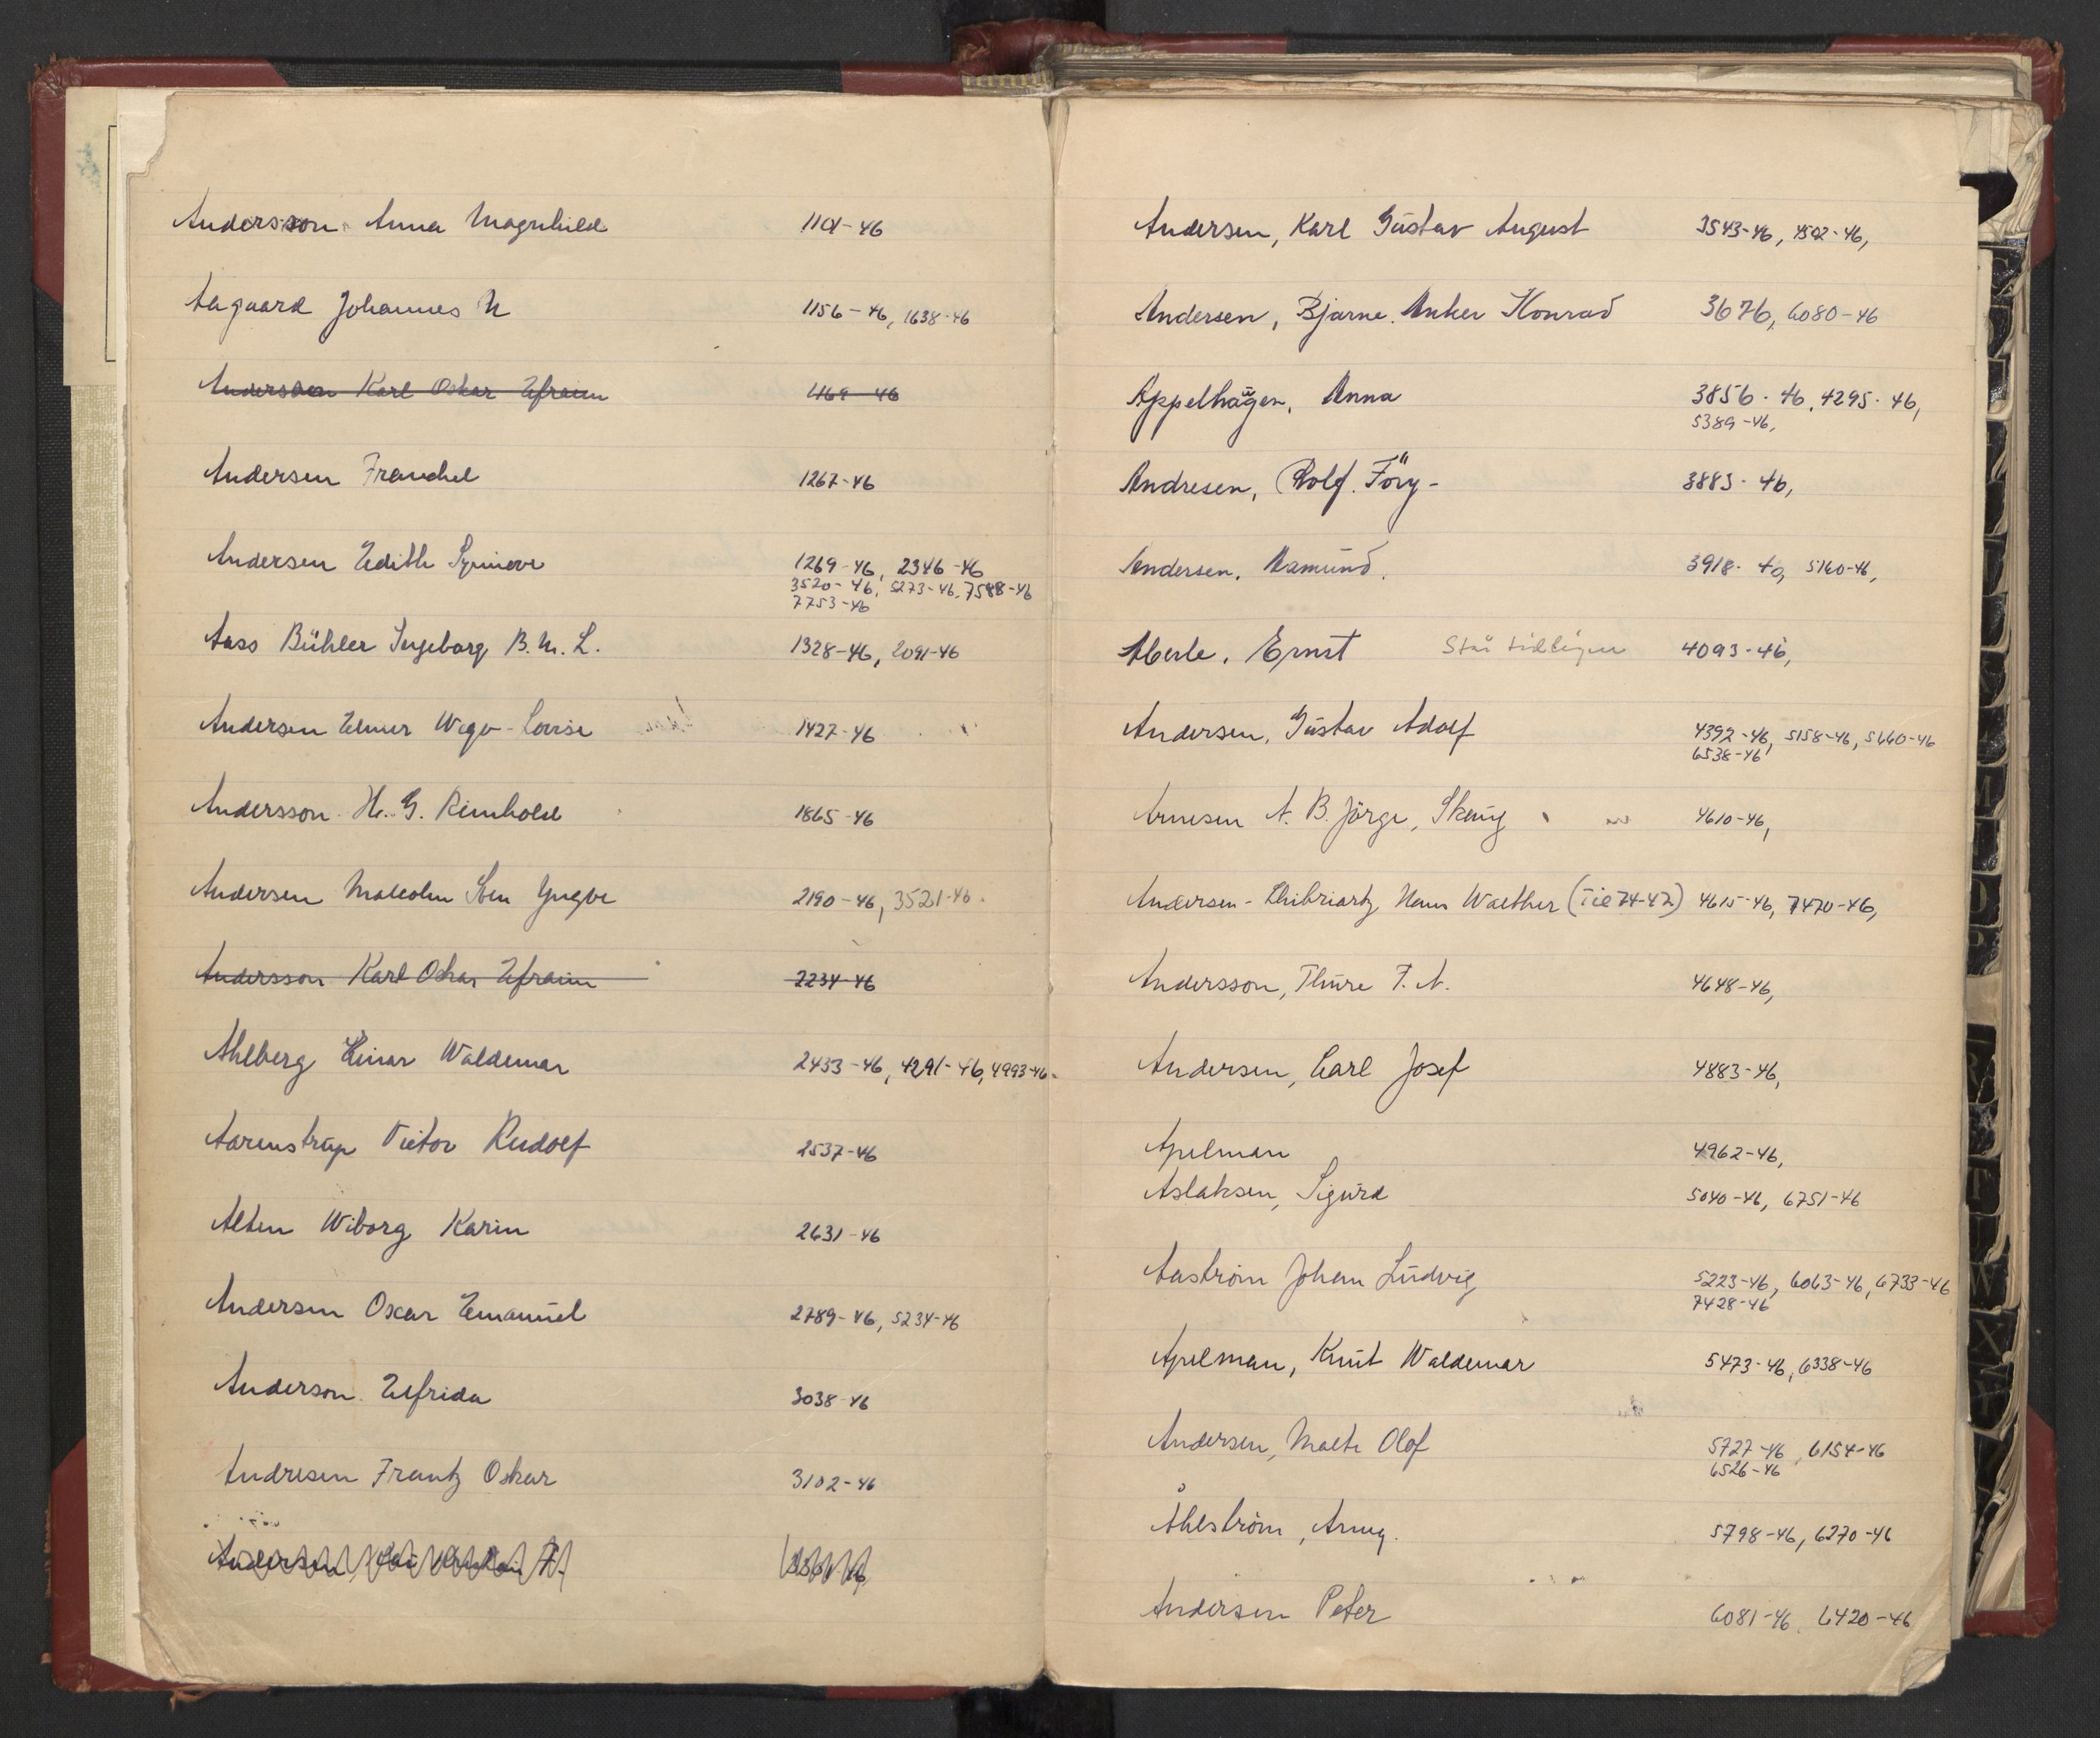 Andersson Anna Magnhild 1101-46
Aagaard Johannes N 1156-46, 1638-46
Andersson Karl Oskar Efraim 1169-46
Andersen Franchel 1267-46
Andersen Edith Synnøve 1269-46, 2346-46
3520-46, 5273-46, 7588-46
7753-46
Aass Bühler Ingeborg B. M. L. 1328-46, 2091-46
Andersen Elmer Wego-Lovise 1427-46
Andersson H. G. Reinhold 1865-46
Andersen Malcolm Sten Yngve 2190-46, 3521-46
Andersson Karl Oskar Efraim 2234-46
Ahlberg Einar Waldemar 2433-46, 4291-46, 4993-46
Aarenstrup Victor Rudolf 2537-46
Alten Wiborg Karin 2631-46
Andersen Oscar Emanuel 2789-46, 5234-46
Anderson Elfrida 3038-46
Andresen Frantz Oskar 3102-46
Andersen
Andersen, Karl Gustav August 3543-46, 4502-46,
Andersen, Bjarne Anker Konrad 3676, 6080-46
Appelhagen, Anna 3856-46, 4295-46,
5389-46,
Andresen, Rolf 3883-46,
Andersen, Asmund 3918-46, 5160-46,
Aberle, Ernst Står tidligere 4093-46,
Andersen, Gustav Adolf 4392-46, 5158-46, 5660-46
6538-46
Arnesen A. B. Jörge, 4610-46,
Andersen- Hans Walther (til 74-47) 4615-46, 7470-46,
Andersson, Thure F. A. 4648-46,
Andersen, Carl Josef 4883-46,
Apelman 4962-46,
Aslaksen, Sigurd 5040-46, 6751-46
Aaström Johan Ludvig 5223-46, 6063-46, 6733-46
7428-46
Apelman, Knut Waldemar 5473-46, 6338-46
Andersen, Malte Olof 5727-46, 6154-46
6526-46
Åhlström, 5798-46, 6270-46
Andersen Peter 6081-46, 6420-46